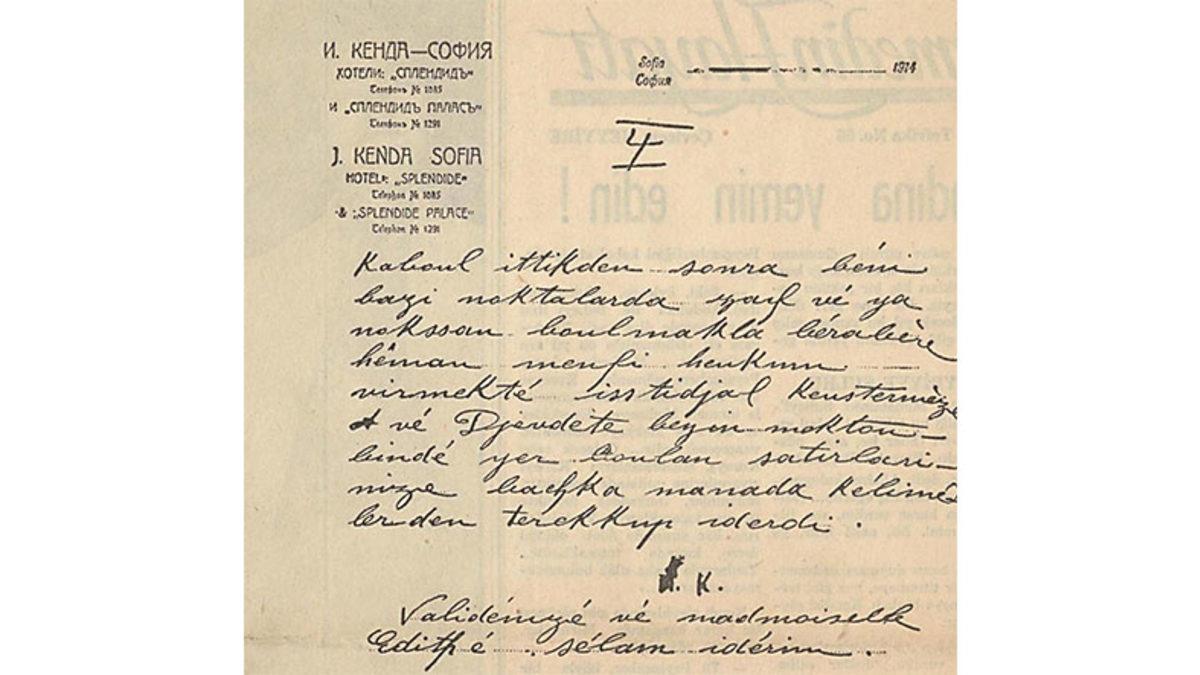 И. КЕНДА—СОФИЯ
ХОТЕЛИ: „СПЛЕНДИДЪ“
Телефонъ № 1085
И „СПЛЕНДИДЪ ПАЛАСЪ“
Телефонъ № 1291
J. KENDA SOFIA
HOTEL: „SPLENDIDE“
Telephon № 1085
& „SPLENDIDE PALACE“
Telephon № 1291
Sofia
София 1914
Kaboul ittikden sonra béni
bazi noktalarda zaf vé ya
nokssan boulmakla bérabère
héman menfi heukum
virmekté isstidjal Keustermèze
vé Djevdète beyin mektou-
bindé yer boulan satirlari-
nize bachka manada Kélimé
lerden terekkup iderdi.
K.
Validénizé vé madmoiselle
Edithé sélam idérim.